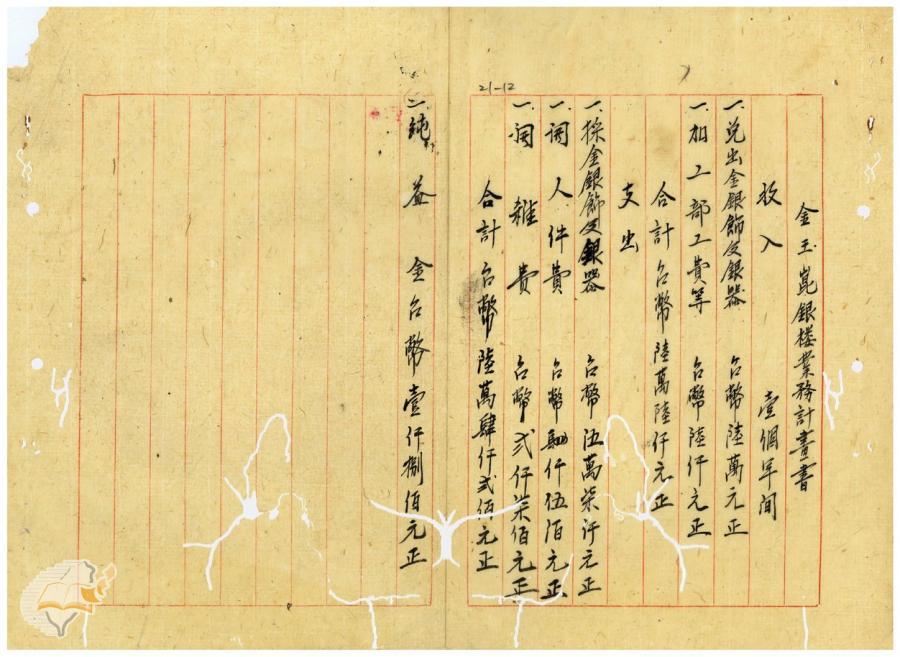 21-12
金玉崑銀楼業務計畫書
收入 壹個年间
一.兑出金銀飾及銀器 台幣陸萬元正
一.加工部工費等 台幣陸仟元正
合計台幣陸萬陸仟元正
支出
一.採金銀飾及銀器 台幣伍萬柒仟元正
一.開人件費 台幣肆仟伍陌元正
一.開雜費 台幣弍仟柒佰元正
合計 台幣陸萬肆仟弍佰元正
一.純益金台幣壹仟捌佰元正